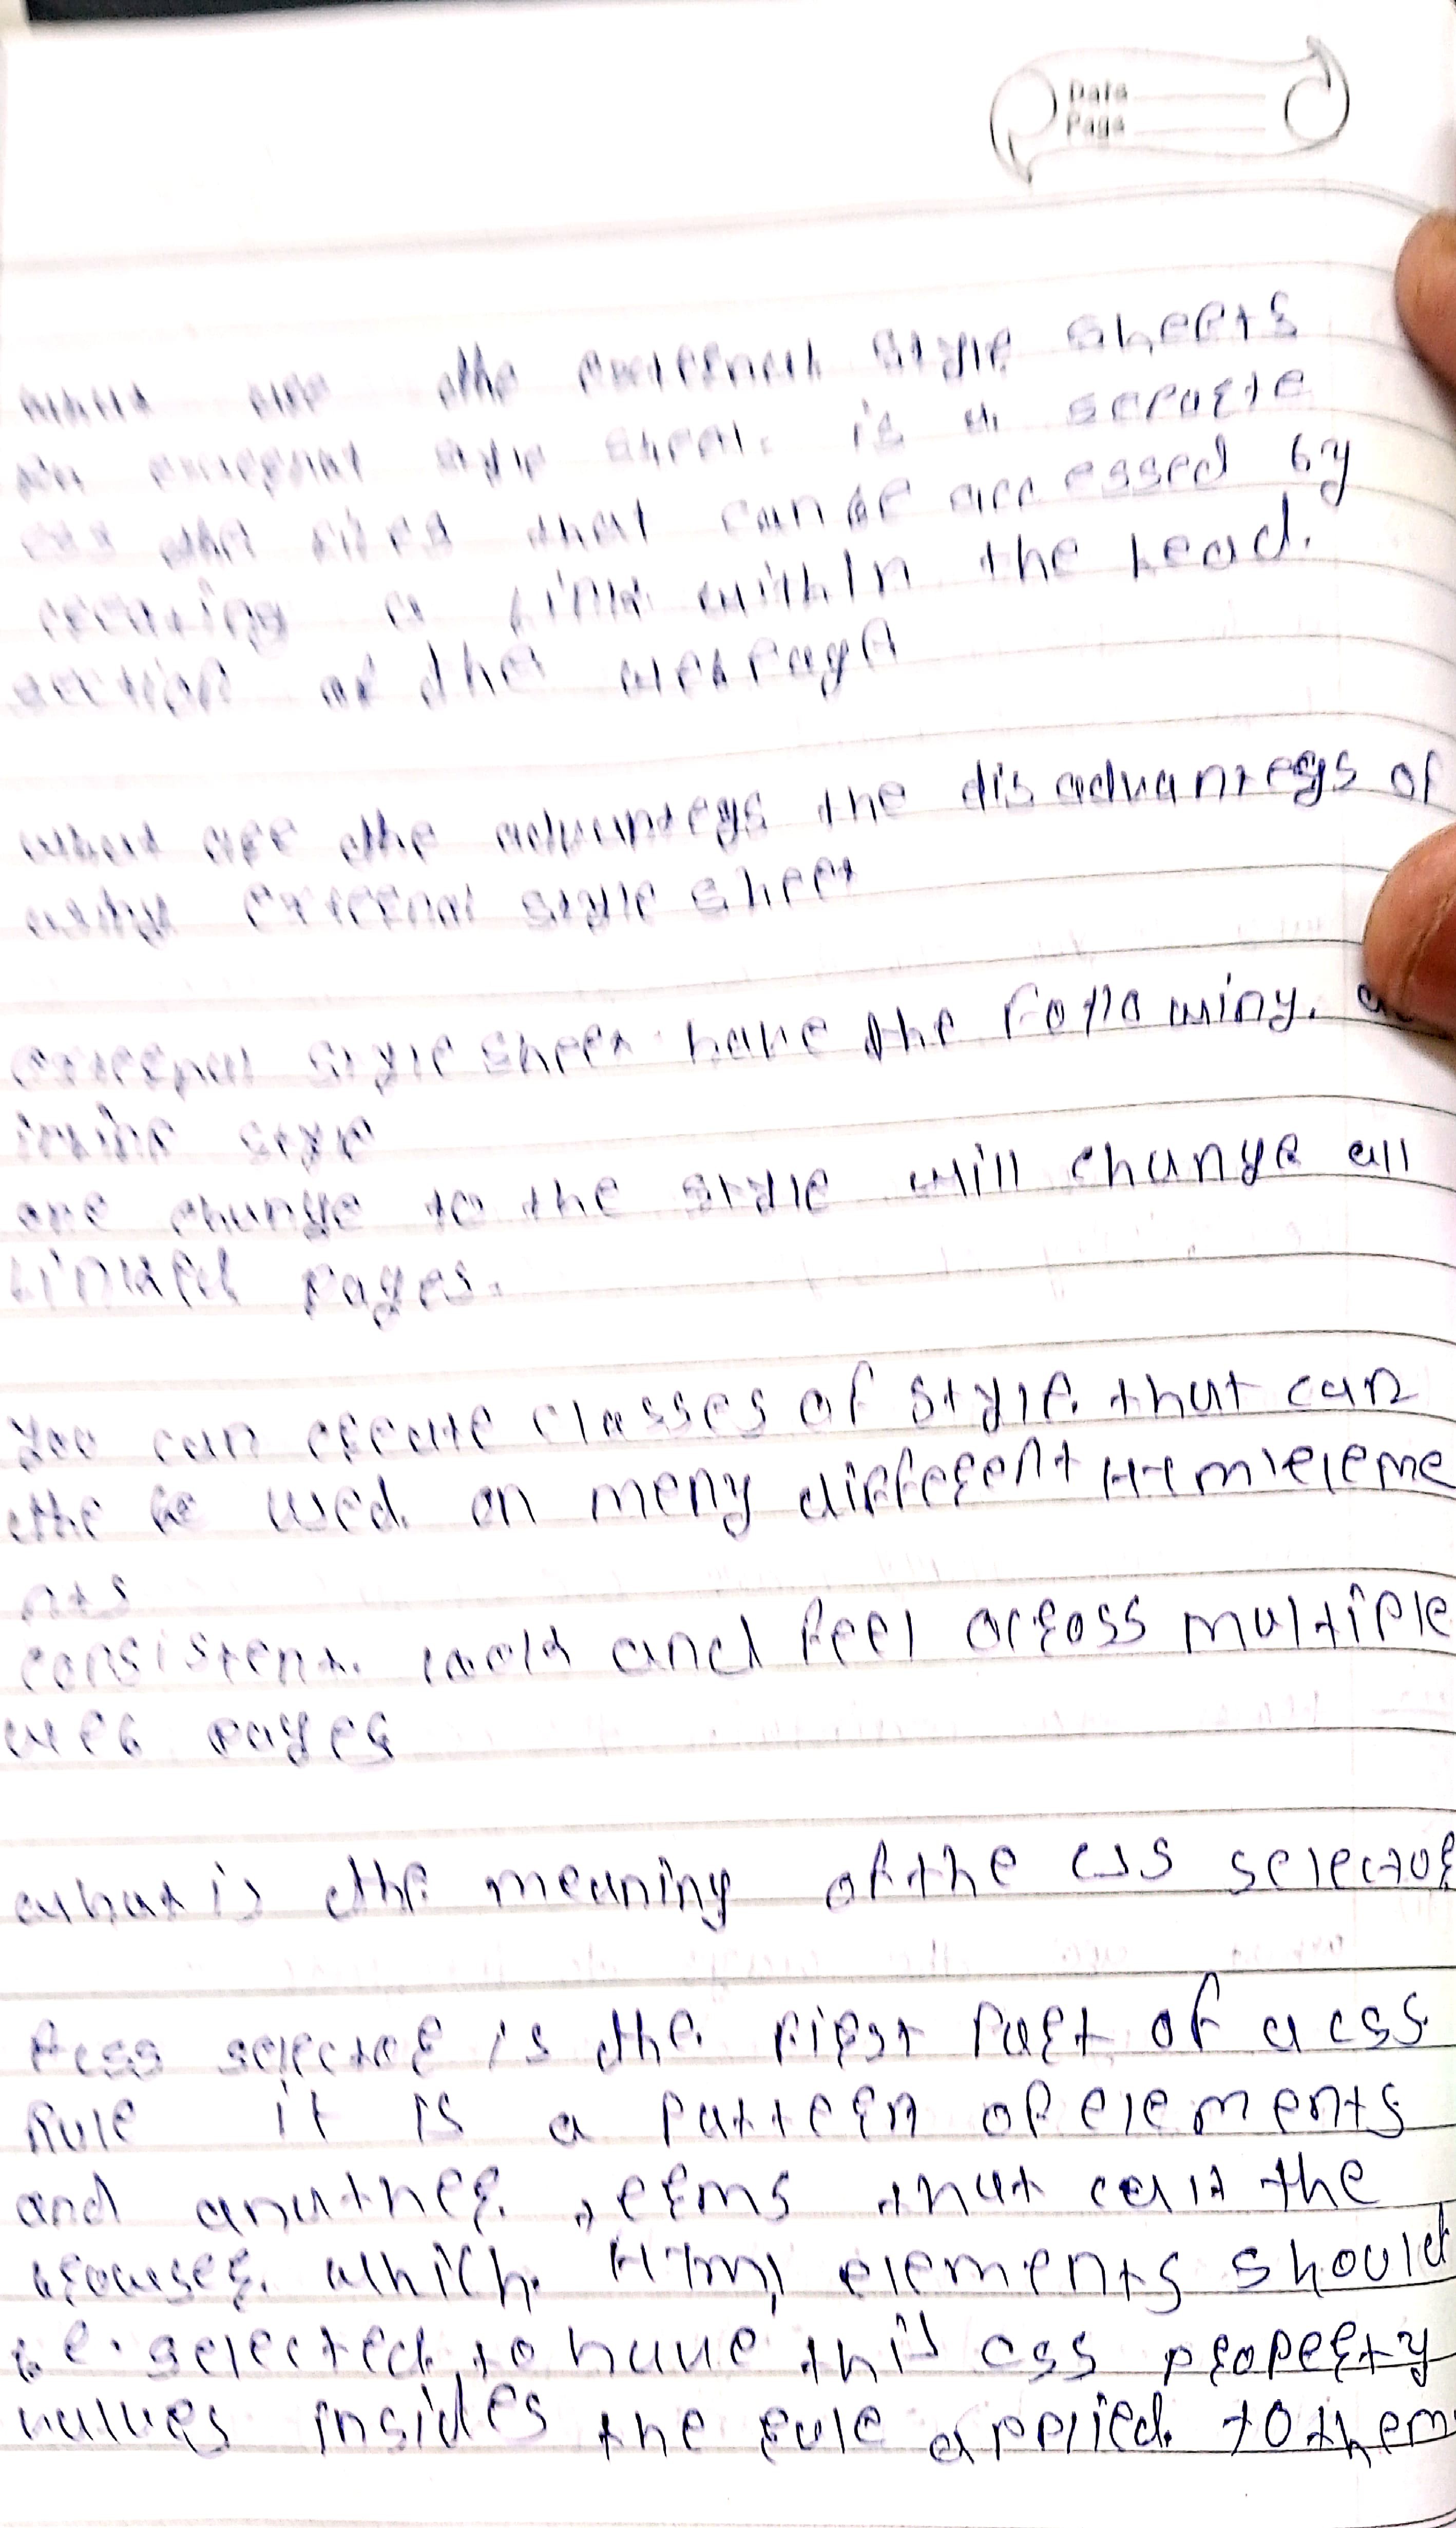 Date
Page
what are the external style sheets
An external style sheet. is a seprate
css the files that can be accessed by
creating a link within the head.
section of the webpage
what are the advantegs the disadvantegs of
using external style sheet
external style sheet have the following.
inline style
one change to the style will change all
linked pages.
you can create classes of style that can
the be used on meny different Html eleme
nts
consistent look and feel across multiple
web pages
what is the meaning of the css selector
A css selector is the first part of a css
Rule it is a pattern of elements
and anuther terms that the
browser which Html elements should
be selected to have this css property
values insides the rule applied to them